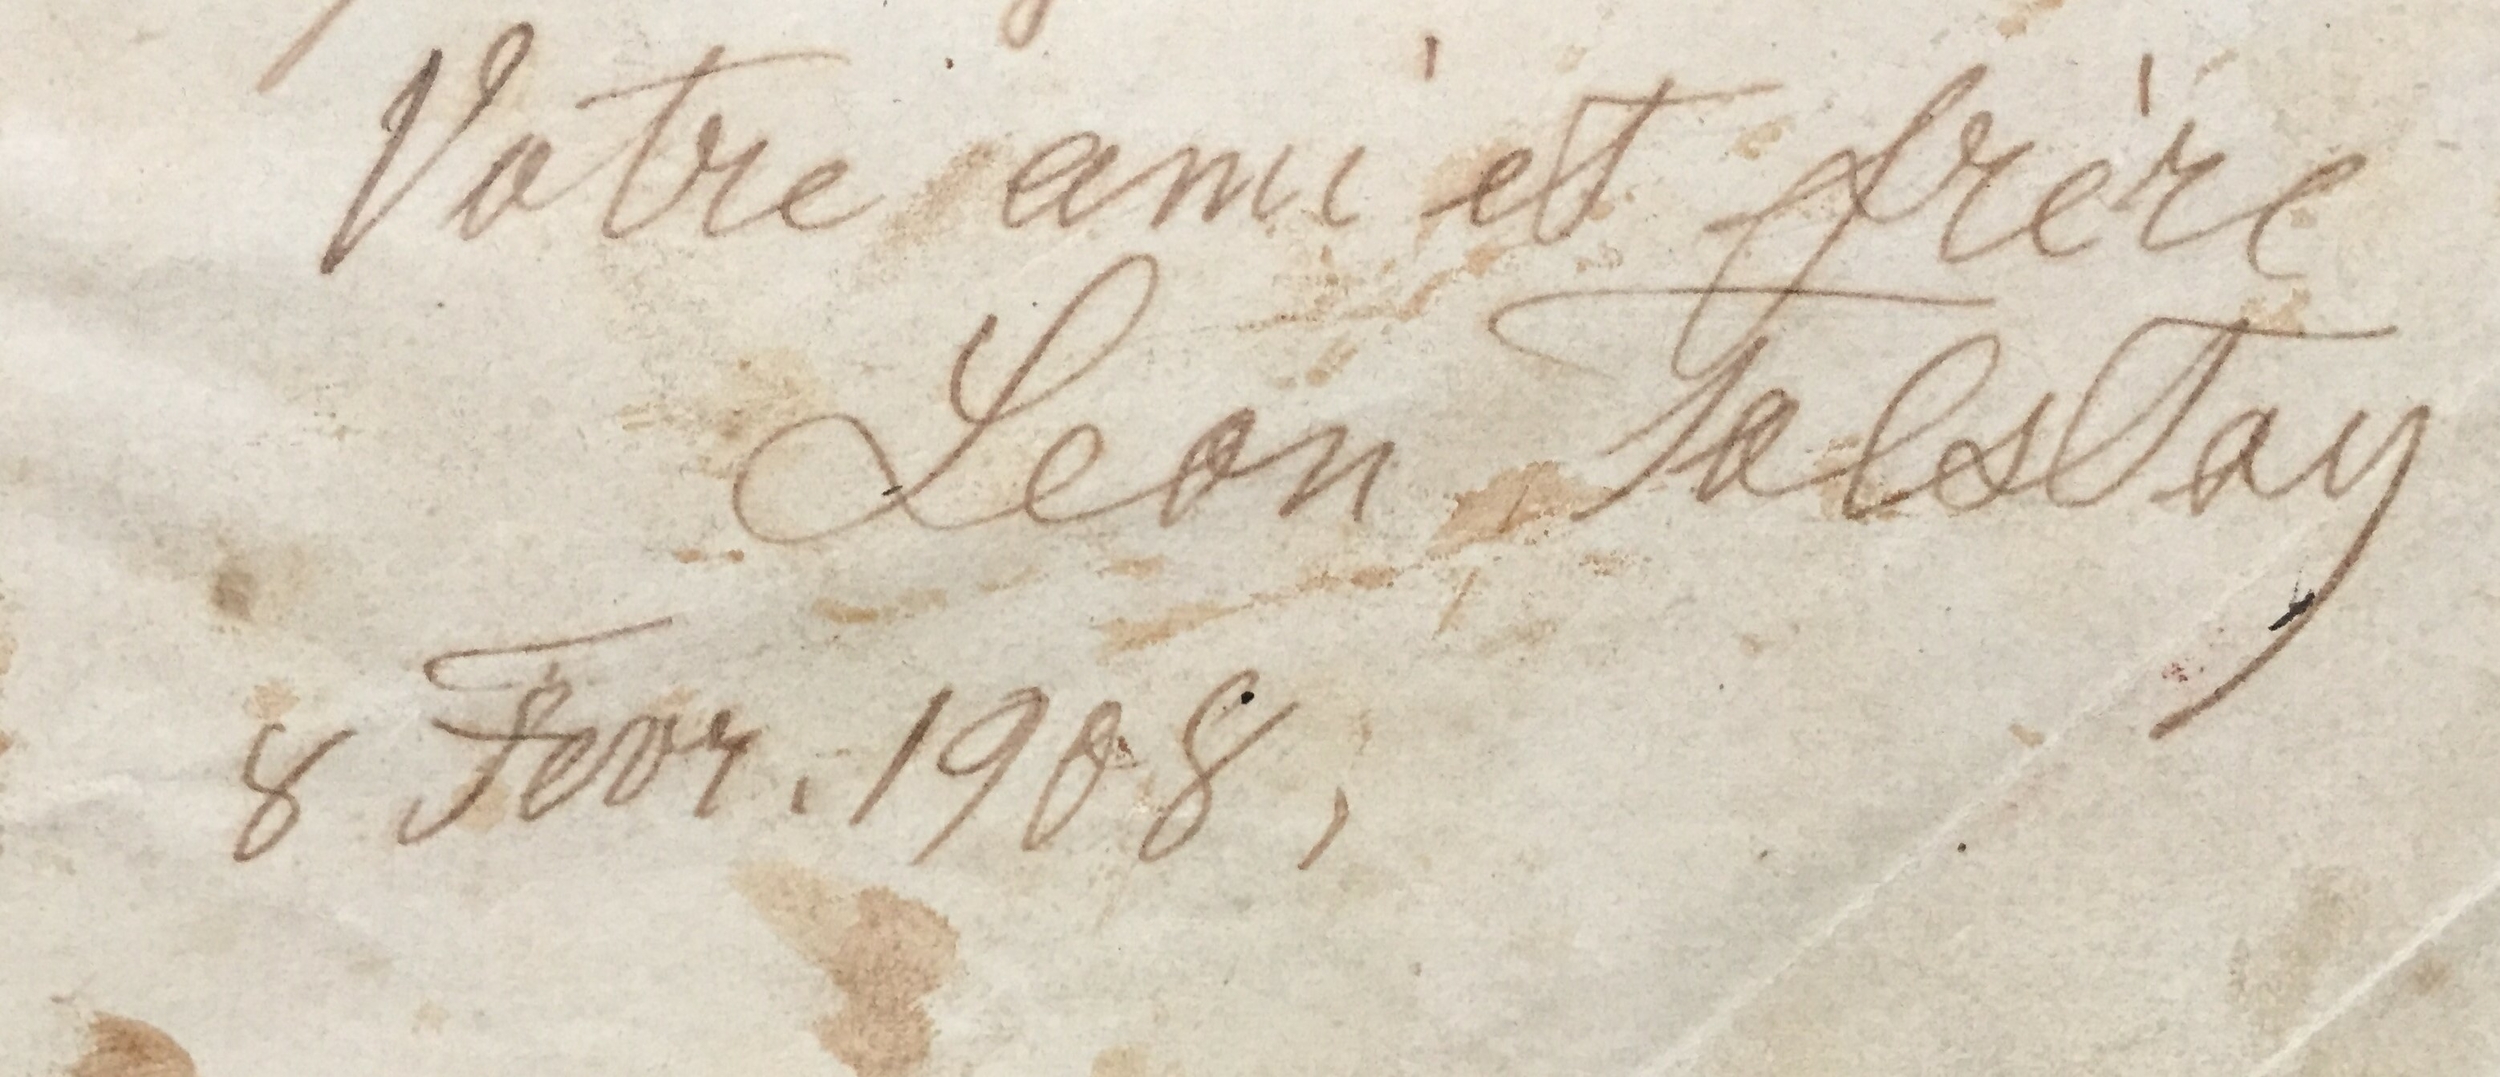 Votre ami et frère
Leon Tolstoy
8 Fevr. 1908,